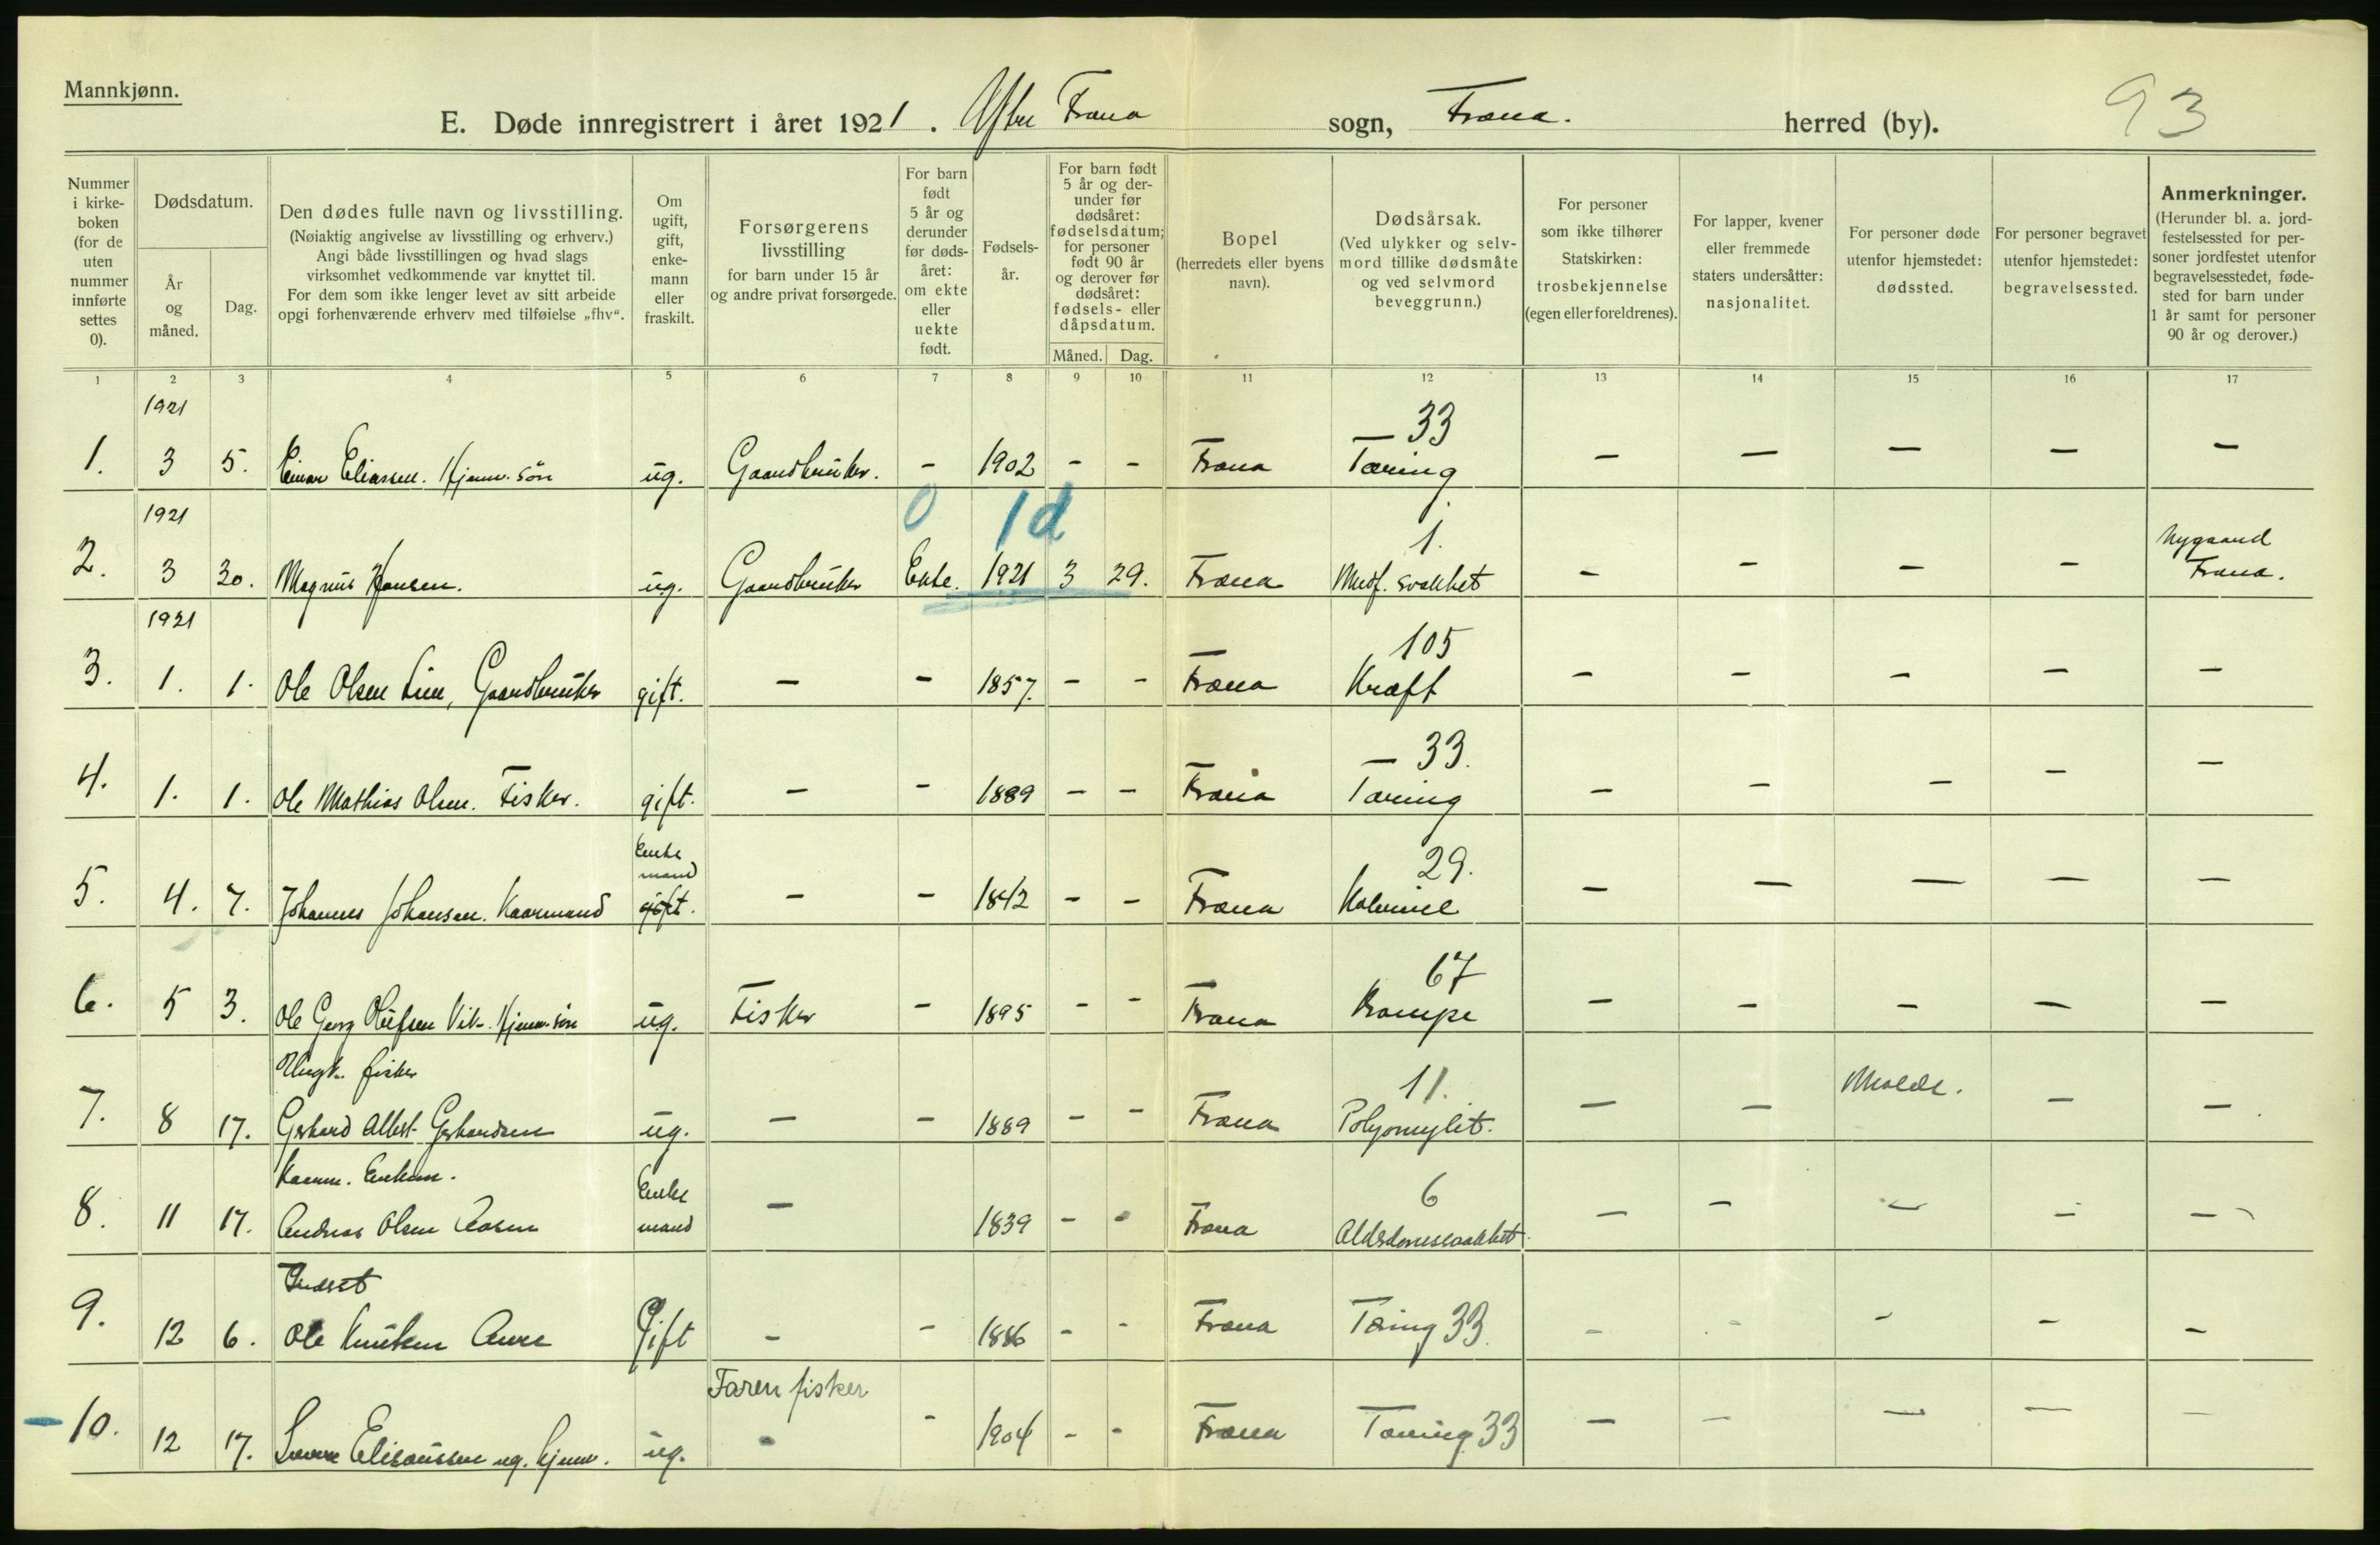 Mannkjønn.
E. Døde innregistrert i året 1921. Ytre Fræna sogn, Fræna. herred (by). 93
Nummer i kirke- boken (for de uten nummer innførte settes 0).
Dødsdatum.
År og måned.
Dag.
Den dødes fulle navn og livsstilling.
(Nøiaktig angivelse av livsstilling og erhverv.)
Angi både livsstillingen og hvad slags
virksomhet vedkommende var knyttet til.
For dem som ikke lenger levet av sitt arbeide
opgi forhenværende erhverv med tilføielse „fhv“.
Om ugift, gift, enke- mann eller fraskilt.
Forsørgerens
livsstilling
for barn under 15 år
og andre privat forsørgede.
For barn født 5 år og derunder før døds- året: om ekte eller uekte født.
Fødsels- år.
For barn født 5 år og der- under før dødsåret: fødselsdatum; for personer født 90 år og derover før dødsåret: fødsels- eller dåpsdatum.
Måned. Dag.
Bopel
(herredets eller byens
navn).
Dødsårsak.
(Ved ulykker og selv-
mord tillike dødsmåte
og ved selvmord
beveggrunn.)
For personer
som ikke tilhører
Statskirken:
trosbekjennelse
(egen eller foreldrenes).
For lapper, kvener
eller fremmede
staters undersåtter:
nasjonalitet.
For personer døde
utenfor hjemstedet:
dødssted.
For personer begravet
utenfor hjemstedet:
begravelsessted.
Anmerkninger.
(Herunder bl. a. jord-
festelsessted for per-
soner jordfestet utenfor
begravelsesstedet, føde-
sted for barn under
1 år samt for personer
90 år og derover.)
1 2 3 4 5 6 7 8 9 10 11 12 13 14 15 16 17
1921
— 33
1. 3 5. Einar Eliassen. Hjemv. søn ug. Gaardbruker. - 1902 - - Fræna Tæring — — — — —
1921 0 1d 1. Nygaard
2. 3 30. Magnus Hansen. ug. Gaardbruker Ekte. 1921 3 29. Fræna Medf. svakhet — — — — Fræna.
1921 105
3. 1. 1. Ole Olsen Lien, Gaardbruker gift. — - 1857. - - Fræna Kræft — — — — —
— 33.
4. 1. 1. Ole Mathias Olsen. Fisker. gift. — - 1889 - - Fræna Tæring — — — — —
Enke
mand 29.
5. 4. 7. Johannes Johansen. Kaarmand gift. — - 1842 - - Fræna — — — — —
67
6. 5 3. Ole Georg Olufsen Vik. Hjemv. søn ug. Fisker - 1895 - - Fræna Krampe — — — — —
Ungk. fisker 11. Molde.
7. 8 17. Gerhard Albert Gerhardsen ug. — - 1889 - - Fræna Polyomylit. — — — —
Kaarm. Enkem. Enke 6
8. 11 17. Andreas Olsen Aasen mand — 1839 - - Fræna Alderdomssvakhet. — — — — —
Indset
9. 12 6. Ole Knutsen Aure Gift - - 1886 - - Fræna Tæring 33. - - - - -
Faren fisker
10. 12 17. Elisæussen ug. hjemv. ug. - - 1904 - - Fræna Tæring 33 — — — — —